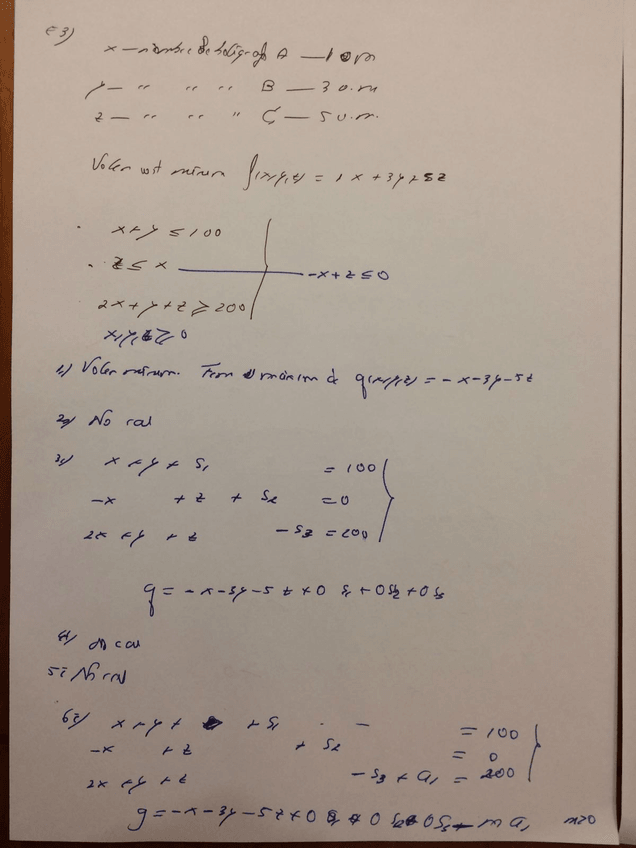 E3)
x — nombre de bolígraf A — 1 u.m
y — " " " B — 3 u.m
z — " " " C — 5 u.m.
Volem mínim f(x,y,z) = 1x + 3y + 5z
x + y ≤ 100
z ≤ x — -x + z ≤ 0
2x + y + z ≥ 200
x,y,z ≥ 0
1) Volem mínim. Fem màxim de g(x,y,z) = -x - 3y - 5z
2) No cal
3) x + y + s₁ = 100
-x + z + s₂ = 0
2x + y + z - s₃ = 200
g = -x - 3y - 5z + 0 s₁ + 0s₂ + 0s₃
4) No cal
5) No cal
6) x + y + s₁ = 100
-x + z + s₂ = 0
2x + y + z - s₃ + a₁ = 200
g = -x - 3y - 5z + 0 s₁ + 0 s₂ + 0 s₃ - m a₁ m≥0